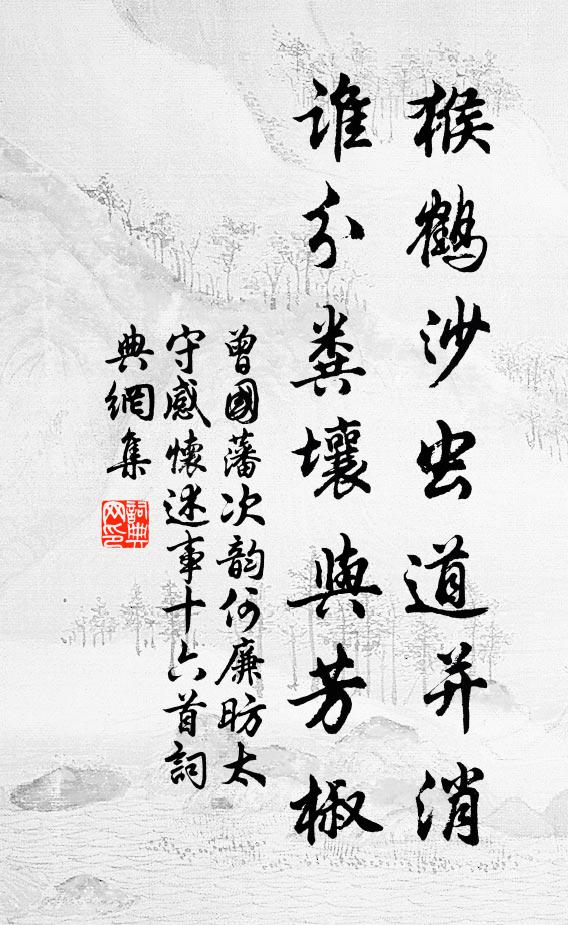 猴鹤沙虫道并消
谁分粪壤与芳椒
曾國藩次韵何廉昉太
守感懷述事十六首詞
典網集
詞典
网印